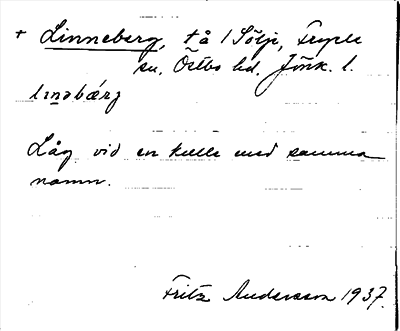 + Linneberg, tå 1 Sölje, Fryele
sn, Östbo hd. Jönk. l.
linəbǽrj
Låg vid en kulle med samma
namn.
Fritz Andersson 1937.